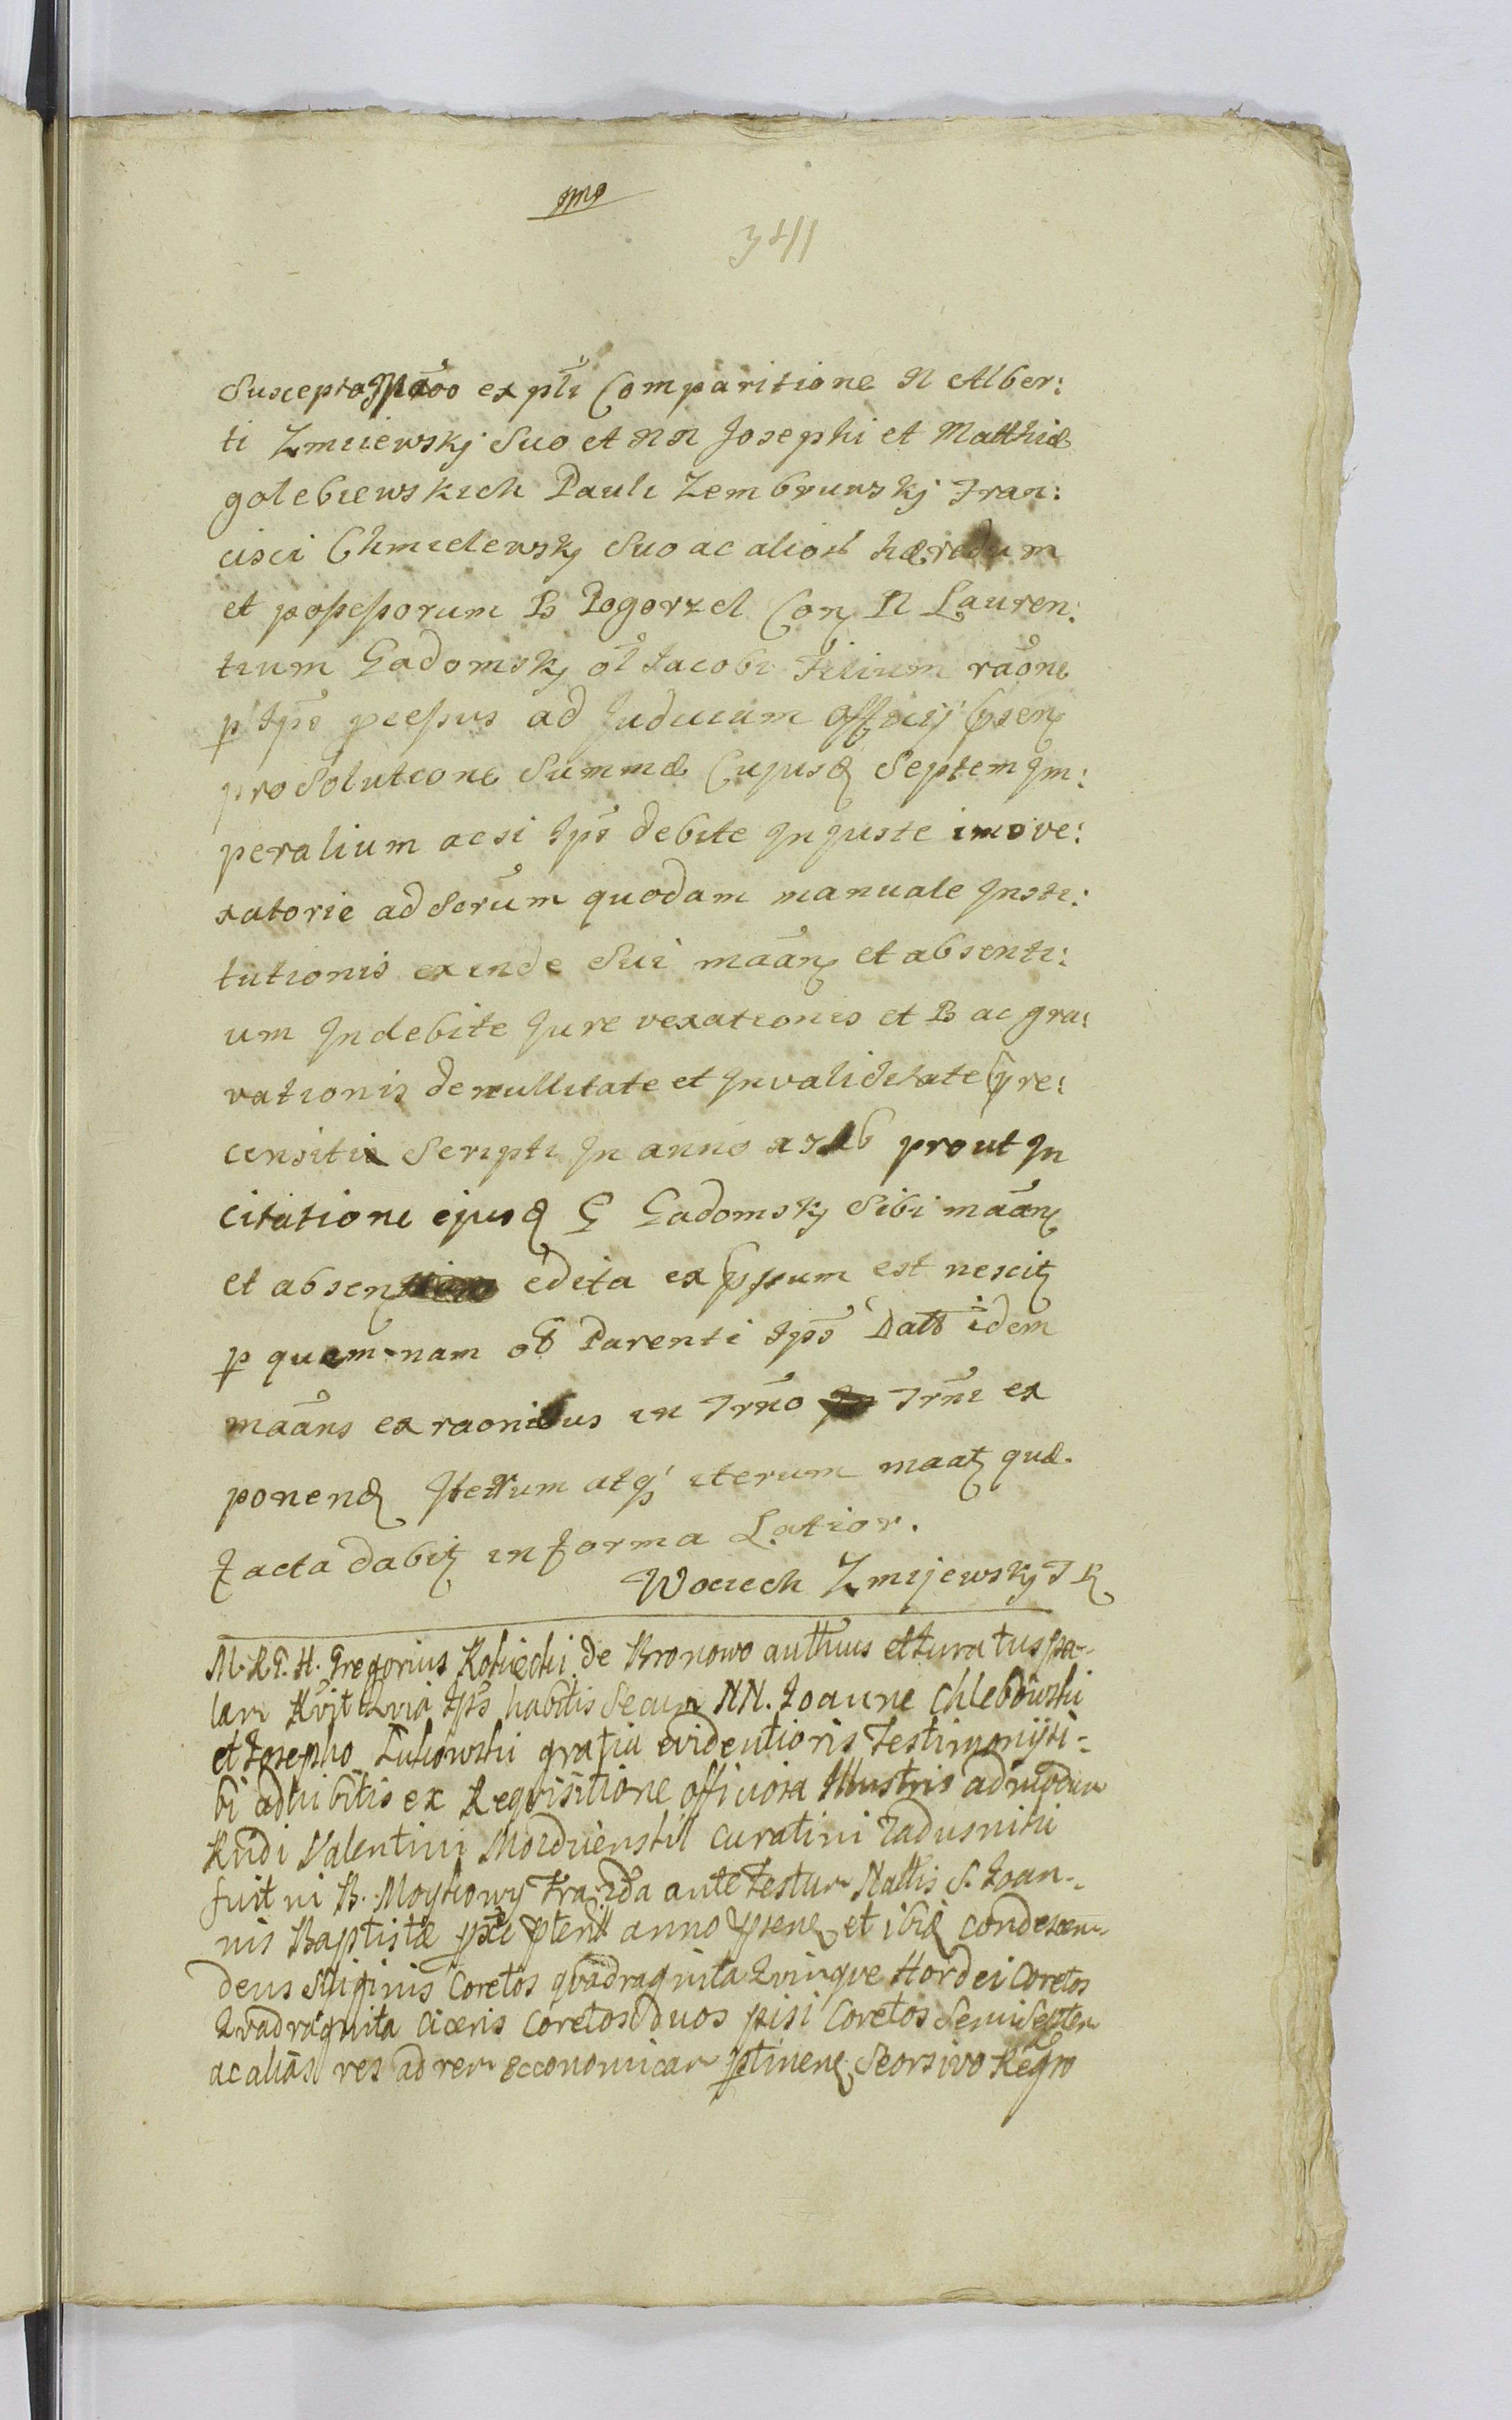 3411
Suscepta ex pli Comparitione N Alber:
ti Zmiiewskj Suo et NN Josephi et Matthiæ
golebiewskich Pauli Zembruwskj Fran:
cisci Chmielewskj Suo ac alior hæredum
et possessorum B Pogorzel Con N Lauren:
tium Gadomskj ol Jacobi Filium raone
p Ips piessus ad Judicium Officij psen
pro Solutione Summæ Cujusd Septem Jm:
peralium acsi Ips debite Injuste imo ve:
xatorie ad Scrum quodam manuale Insti:
tutionis exinde Sui maan et absenti:
um Indebite Jure vexationis et B ac gra:
vationis de nullitate et Invaliditate pre:
censiti Scripti In anno prout In
citatione ejusd G Gadomskj Sibi maan
et absen edita ex est nescit
p quem-nam ol Parenti Ips Datt idem
maans ex raonibus in Trno Trni ex
ponend Iterum atq iterum maat quæ
facta dabit in forma Latior.
Wociech Zmijewskj T R
M. R T. H. Gregorius Kotiecki de Bronowo authus et Juratus pa-
lam Rvit Ips habitis Secum NN. Joanne Chlebowski
et Josepho Lutiowski gratia evidentioris Testimonij si-
bi adhibitis ex Reqvisitione officiosa Illustris admodum
Rndi Valentini curatini Zadusniki
fuit in B. ante Festum Nattis S. Joan-
nis Baptistæ pxe pterit anno psene et ibid condescen-
dens Siliginis Coretos qvadraginta Qvinqve Hordei Coretos
Qvadraginta Ciceris Coretos duos pisi Coretos Semi Septem
ac alias res ad rem œconomicam ptinene Seorsivo Regro